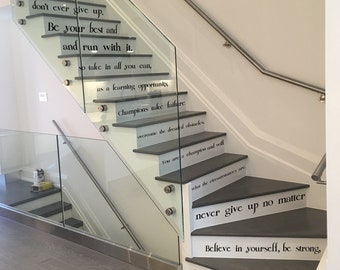 don't ever give up.
Be your best and
and run with it.
so take in all you can,
as a learning opportunity.
Champions take failure
overcome the dreaded obstacles.
You are a champion and will
what the circumstances are.
never give up no matter
Believe in yourself, be strong,